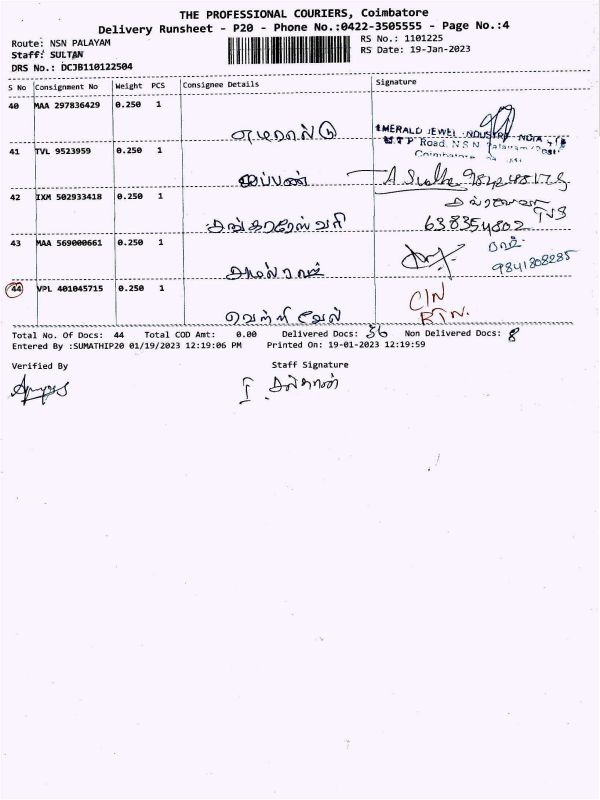 THE PROFESSIONAL COURIERS, Coimbatore
Delivery Runsheet - P20 - Phone No.:0422-3505555 - Page No.:4
Route: NSN PALAYAM
RS No.: 1101225
Staff: SULTAN
RS Date: 19-Jan-2023
DRS No.: DCJB110122504
S No Consignment No Weight PCS Consignee Details Signature
40 MAA 297836429 0.250 1
எமரால்டு
EMERALD JEWEL INDUSTRY INDIA
M.T.P Road, N.S.N Palayam (Post)
Coimbatore
41 TVL 9523959 0.250 1
ஐப்பண்
42 IXM 502933418 0.250 1
சங்கரேஸ்வரி
638354802
43 MAA 569000661 0.250 1
அமல்ராஜ்
ராம்
9841808285
44 VPL 401045715 0.250 1
வெற்றிவேல்
C/N
RTN.
Total No. Of Docs: 44 Total COD Amt: 0.00 Delivered Docs: 36 Non Delivered Docs: 8
Entered By :SUMATHIP20 01/19/2023 12:19:06 PM Printed On: 19-01-2023 12:19:59
Verified By Staff Signature